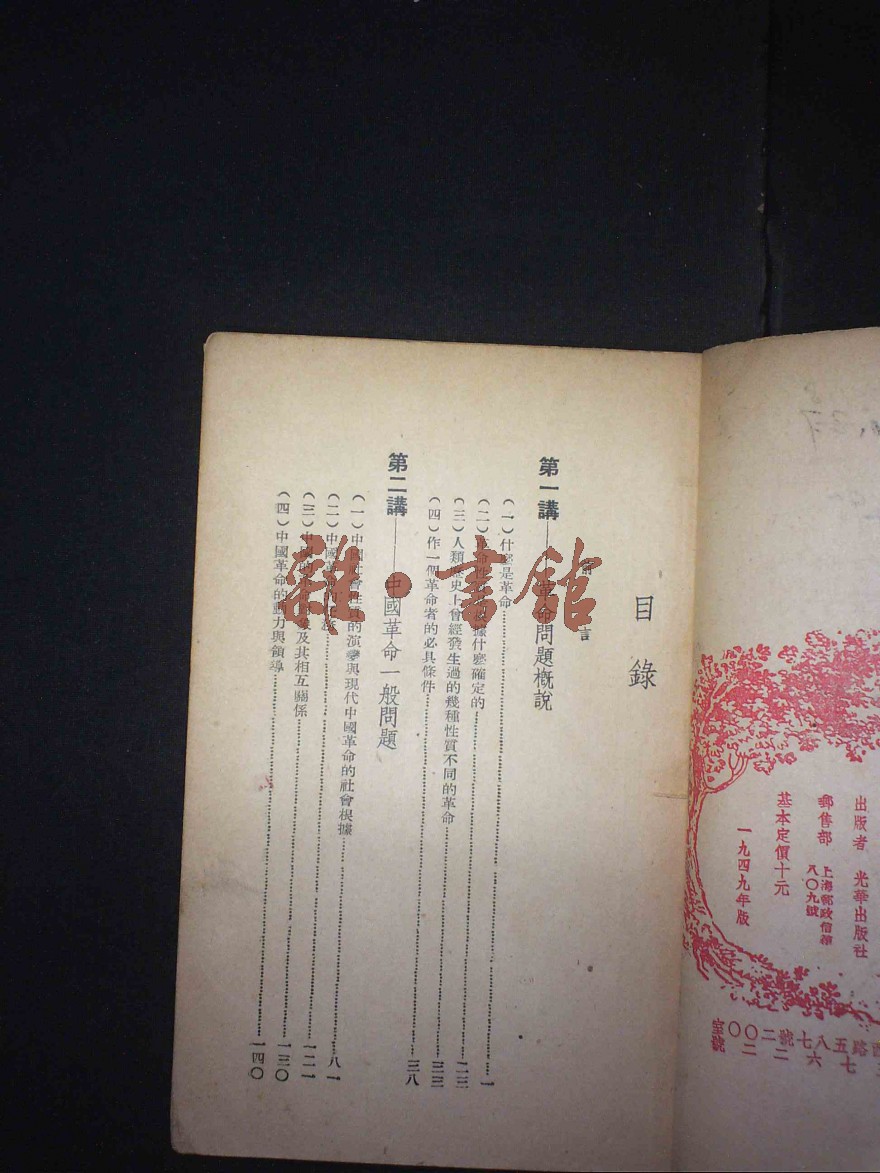 出版者 光華出版社
郵售部 上海郵政信箱
八〇九號
基本定價十元
一九四九年版
目錄
言
第一講——革命問題概說
(一)什麼是革命……一
(二)革命性 根據什麼確定的……二三
(三)人類歷史上曾經發生過的幾種性質不同的革命……三三
(四)作一個革命者的必具條件……三八
第二講——中國革命一般問題
(一)中國社會性質的演變與現代中國革命的社會根據……八一
(二)中國革命……一二一
(三)中國 及其相互關係……一三〇
(四)中國革命的動力與領導……一四〇
雜·書館